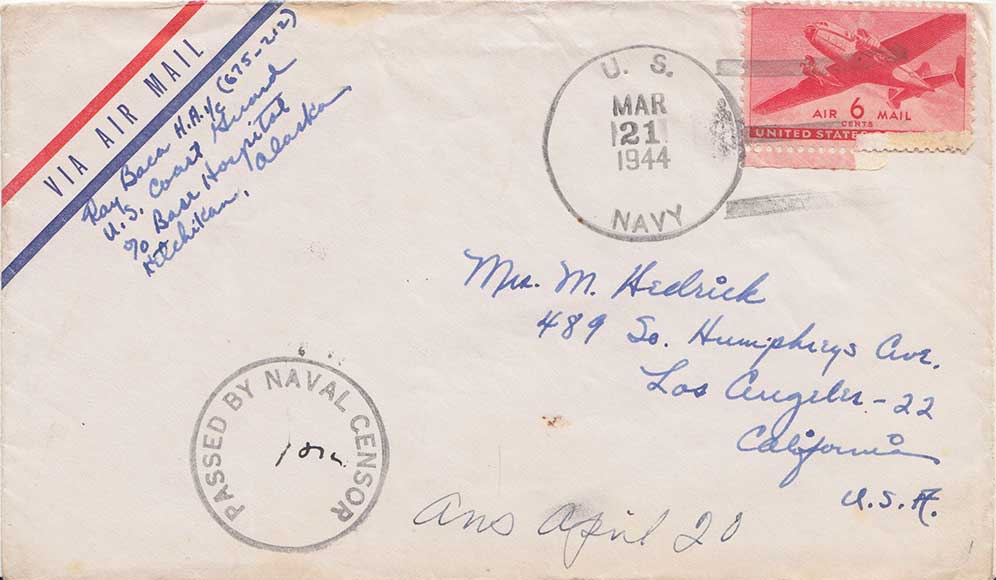 VIA AIR MAIL
Ray Baca H.A.1/c (675-212)
U.S. Coast Guard
c/o Base Hospital
Ketchikan, Alaska
U. S.
MAR
21
1944
NAVY
AIR 6 MAIL
CENTS
UNITED STATES
Mrs. M. Hedrick
489 So. Humphreys Ave.
Los Angeles - 22
California
U.S.A.
PASSED BY NAVAL CENSOR
Ans April 20